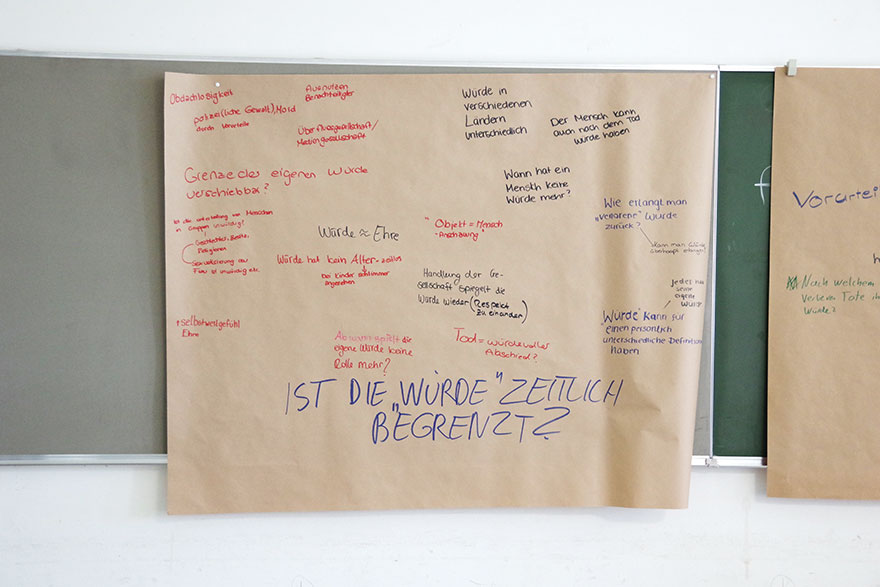 Obdachlosigkeit
polizei(liche Gewalt), Mord
durch Vorurteile
Ausnutzen
Benachteiligter
Überflussgesellschaft/
Würde in
verschiedenen
Ländern
unterschiedlich
Der Mensch kann
auch nach dem Tod
Würde haben
Grenze des eigenen Würde
verschiebbar?
Wann hat ein
Mensch keine
Würde mehr?
Ist die Unterteilung von Menschen
in Gruppen unwürdig?
Geschlechter,
Religionen
Sexualisierung von
Frau ist unwürdig etc.
Würde ≈ Ehre
"Objekt = Mensch
-Anschauung"
Wie erlangt man
"verlorene" Würde
zurück?
Kann man Würde
überhaupt erlangen?
Würde hat kein Alter → zeitlos
Bei Kinder schlimmer
angesehen
Handlung der Ge-
sellschaft spiegelt die
Würde wieder (Respekt
zu einander)
Jeder hat
seine
eigene
Würde
"Würde" kann für
einen persönlich
unterschiedliche Definition
haben
↑ Selbstwertgefühl
Ehre
Ab wann spielt die
eigene Würde keine
Rolle mehr?
Tod = würdevoller
Abschied?
IST DIE „WÜRDE" ZEITLICH
BEGRENZT?
Vorurtei
Nach welchem
Tote
Würde?